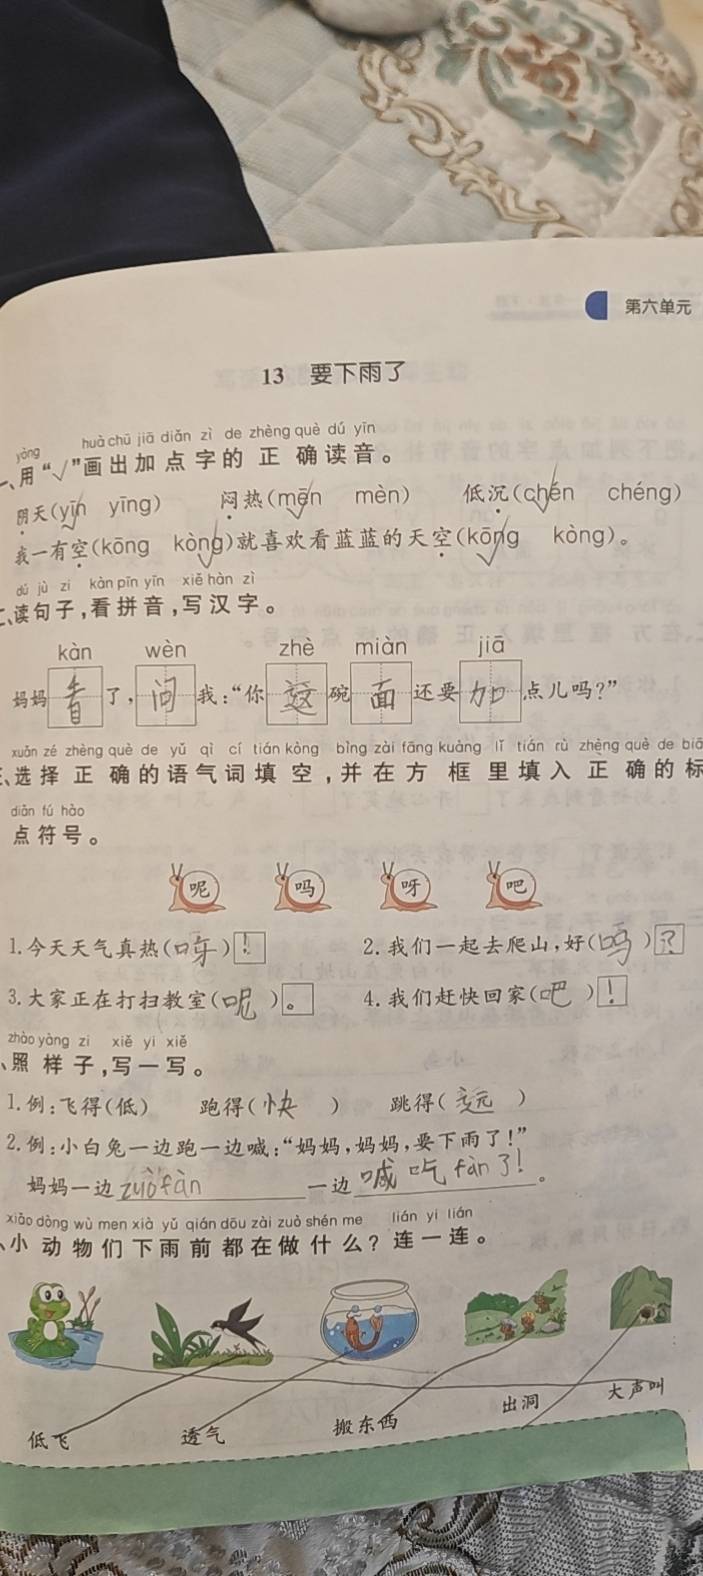 第六单元
13 要下雨了
yòng huà chū jiā diǎn zì de zhèng què dú yīn
一、用“√”画出加点字的正确读音。
阴天(yīn yīng) 闷热(mēn mèn) 低沉(chén chéng)
我一有空(kōng kòng)就喜欢看蓝蓝的天空(kōng kòng)。
dú jù zi kàn pīn yīn xiě hàn zì
二、读句子,看拼音,写汉字。
kàn wèn zhè miàn jiā
妈妈看了,问我:“你这碗面还要加点儿吗?”
xuǎn zé zhèng què de yǔ qì cí tián kòng bìng zài fāng kuàng lǐ tián rù zhèng què de biā
三、选择正确的语气词填空,并在方框里填入正确的标
diǎn fú hào
点符号。
呢 吗 呀 吧
1.今天天气真热(呀)! 2.我们一起去爬山,好(吗)?
3.大家正在打扫教室(呢)。 4.我们赶快回家(吧)!
zhào yàng zi xiě yi xiě
、照样子,写一写。
1.例:飞得(低) 跑得(快) 跳得(远)
2.例:小白兔一边跑一边喊:“妈妈,妈妈,要下雨了!”
妈妈一边zuò fàn一边喊吃fàn了!。
xiǎo dòng wù men xià yǔ qián dōu zài zuò shén me lián yi lián
、小动物们下雨前都在做什么?连一连。
低飞 透气 搬东西 出洞 大声叫